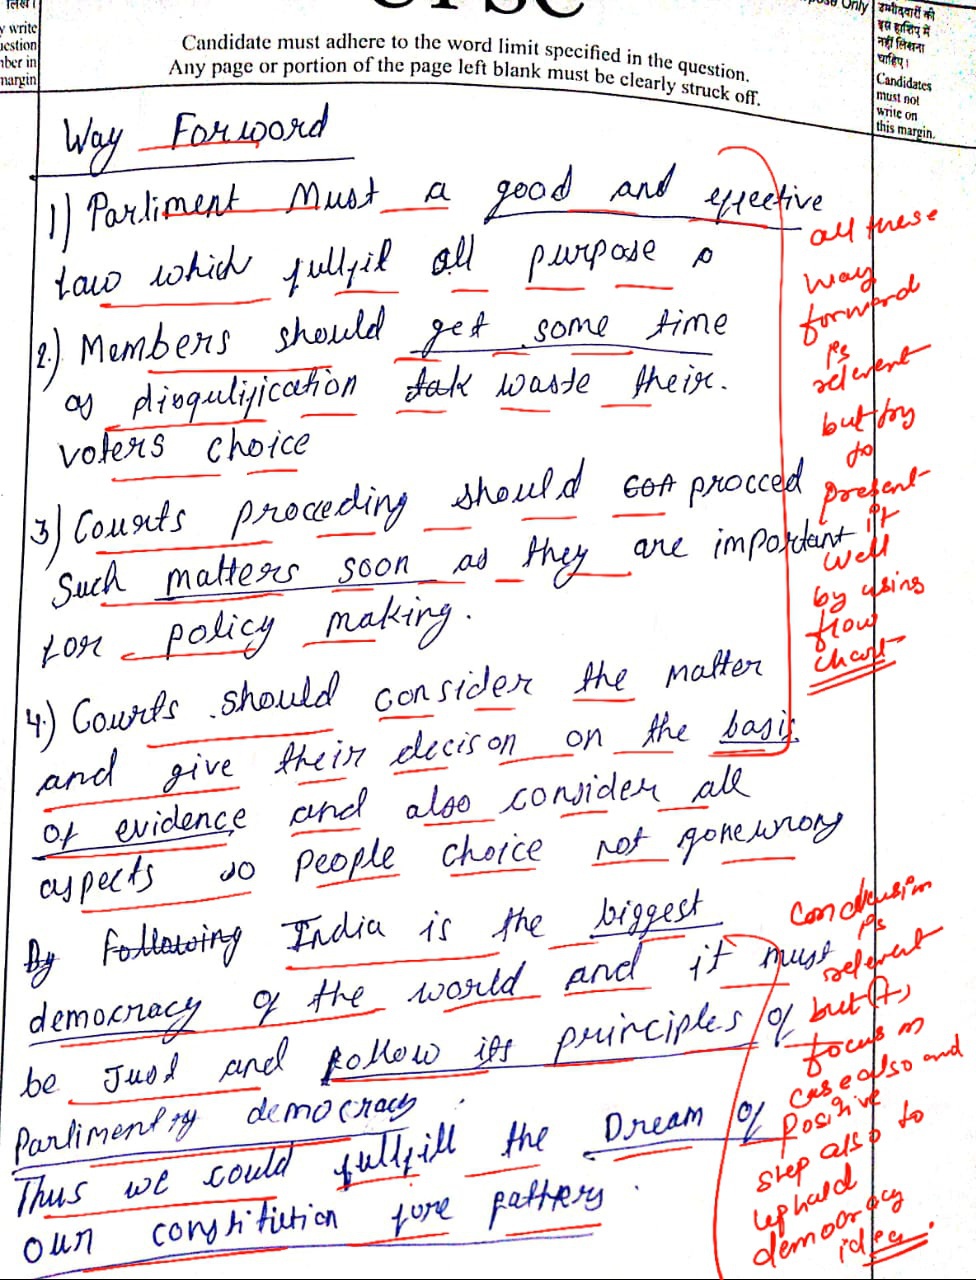 लिखें।
y write
uestion
nber in
margin
UPSC
Candidate must adhere to the word limit specified in the question.
Any page or portion of the page left blank must be clearly struck off.
pose Only
उम्मीदवारों को
इस हाशिए में
नहीं लिखना
चाहिए।
Candidates
must not
write on
this margin.
Way Forword
1) Parliment Must a good and effective
Law which fullfil all purpose
2.) Members should get some time
as disqulification tak waste their.
voters choice
3) Courts proceding should procced
Such matters soon as they are important
for policy making.
4.) Courts should consider the matter
and give their decison on the basis
of evidence and also consider all
aspects so people choice not gone wrong
By following India is the biggest
democracy of the world and it must
be Just and follow its principles of
Parlimentry democracy.
Thus we could fullfill the Dream of
our constitution fore fathers.
all these
way
forward
is
relevent
but try
to
present
it
well
by using
flow
chart
Conclusion
is
relevent
but (+)
focus on
case also and
positive
step also to
uphald
democracy
idea.